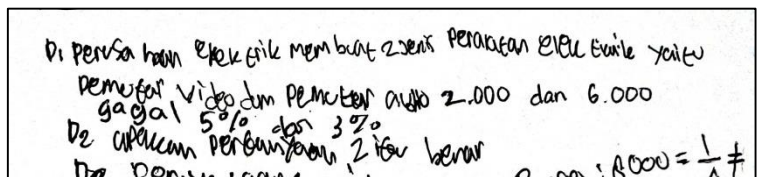 D1 perusahaan elektrik membuat 2 jenis peralatan elektrik yaitu
pemutar video dan pemutar audio 2.000 dan 6.000
gagal 5% dan 3%
D2 apakah pernyataan 2 itu benar
: 8000 = 1